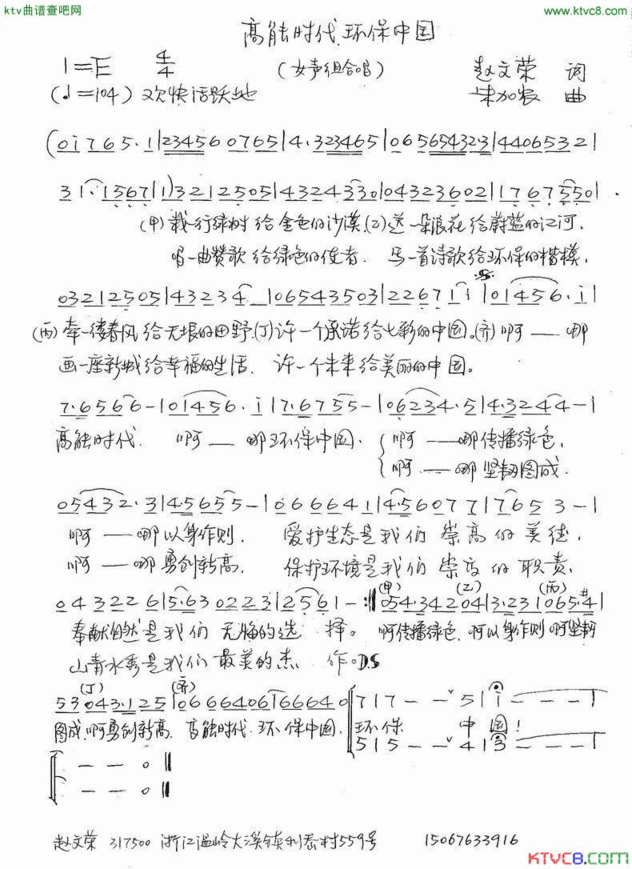 ktv曲谱查吧网
www.ktvc8.com
高能时代.环保中国
1=E 4/4 (女声组合唱) 赵文荣 词
(♩=104) 欢快活跃地 朱加农 曲
(0i765·1|234560765|4·323465|0656543231|44065321
31·1567|1)3212505|4324330|04323602|1767550·
(甲)栽一行绿树给金色的沙漠,(乙)送一朵浪花给蔚蓝的江河.
唱一曲赞歌给绿色的使者. 写一首诗歌给环保的楷模.
03212505|43234—|06543503|22671i|01456·i|
(丙)牵一缕春风给无垠的田野.(丁)许一个承诺给七彩的中国.(齐)啊——哪
画一座新城给幸福的生活. 许一个未来给美丽的中国。
7·6566-|01456·i|7·6755-|06234·5|4·3244-|
高能时代. 啊——哪环保中国. 啊——哪传播绿色.
啊——哪坚韧图成.
05432·3|4·5655-|0666641|4·56077|1765 3-|
啊——哪以身作则. 爱护生态是我们 崇高的美德.
啊——哪勇创新高. 保护环境是我们 崇高的职责.
043226|5·6302231|2561-:‖(甲)054·34204(乙)|3·2310(丙)65#4|
奉献自然是我们 无悔的选择。 啊传播绿色.啊以身作则啊坚韧
山青水秀是我们 最美的杰作。D.S
53(丁)043·125|(齐)06664061666640|717--ˇ51|i---|
图成.啊勇创新高. 高能时代.环保中国. 环保 中国!
515--ˇ41|3---|
--0‖
--0‖
赵文荣 317500 浙江温岭大溪镇利泰村559号 15067633916
KTVC8.COM